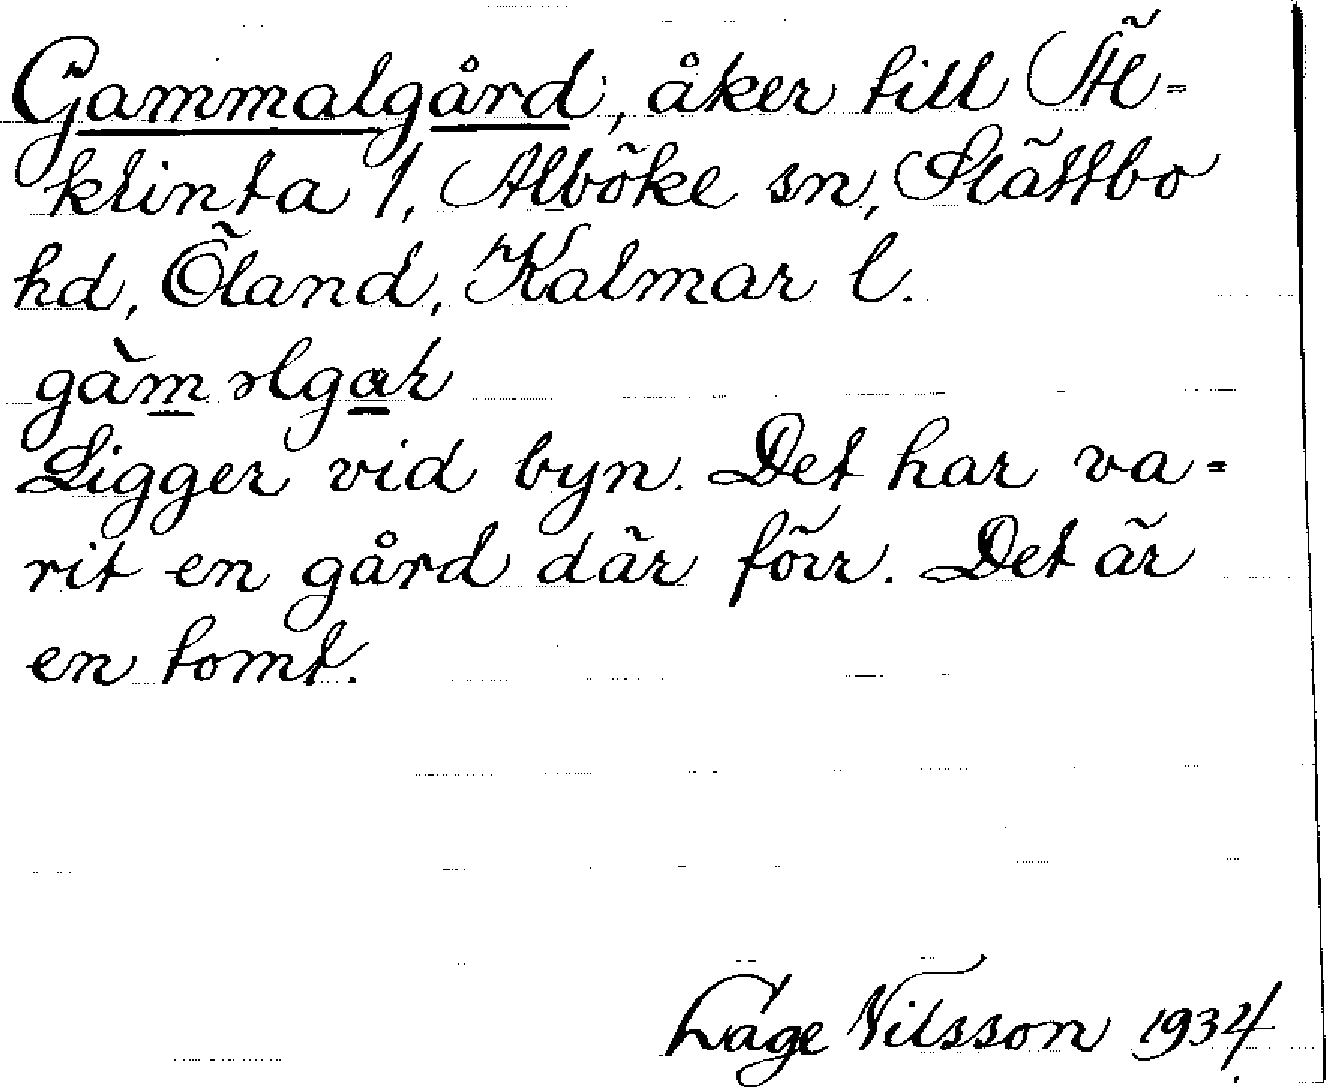 Gammalgård, åker till Äl-
klinta 1, Alböke sn, Slättbo
hd, Öland, Kalmar l.
gàməlgaɽ
Ligger vid byn. Det har va-
rit en gård där förr. Det är
en tomt.
Låge Nilsson 1934.